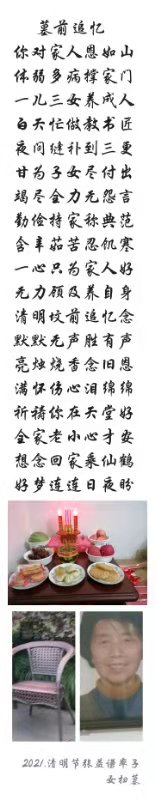 墓前追忆
你对家人恩如山
体弱多病撑家门
一儿三女养成人
白天忙做教书匠
夜间缝补到三更
甘为子女尽付出
竭尽全力无怨言
勤俭持家称典范
含辛茹苦忍饥寒
一心只为家人好
无力顾及养自身
清明坟前追忆念
默默无声胜有声
亮烛烧香念旧恩
满怀伤心泪绵绵
祈祷你在天堂好
全家老小心才安
想念回家乘仙鹤
好梦连连日夜盼
2021.清明节张益谱率子
女扫墓